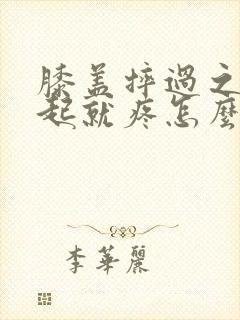 膝盖摔过之
起就疼怎麼
李華麗